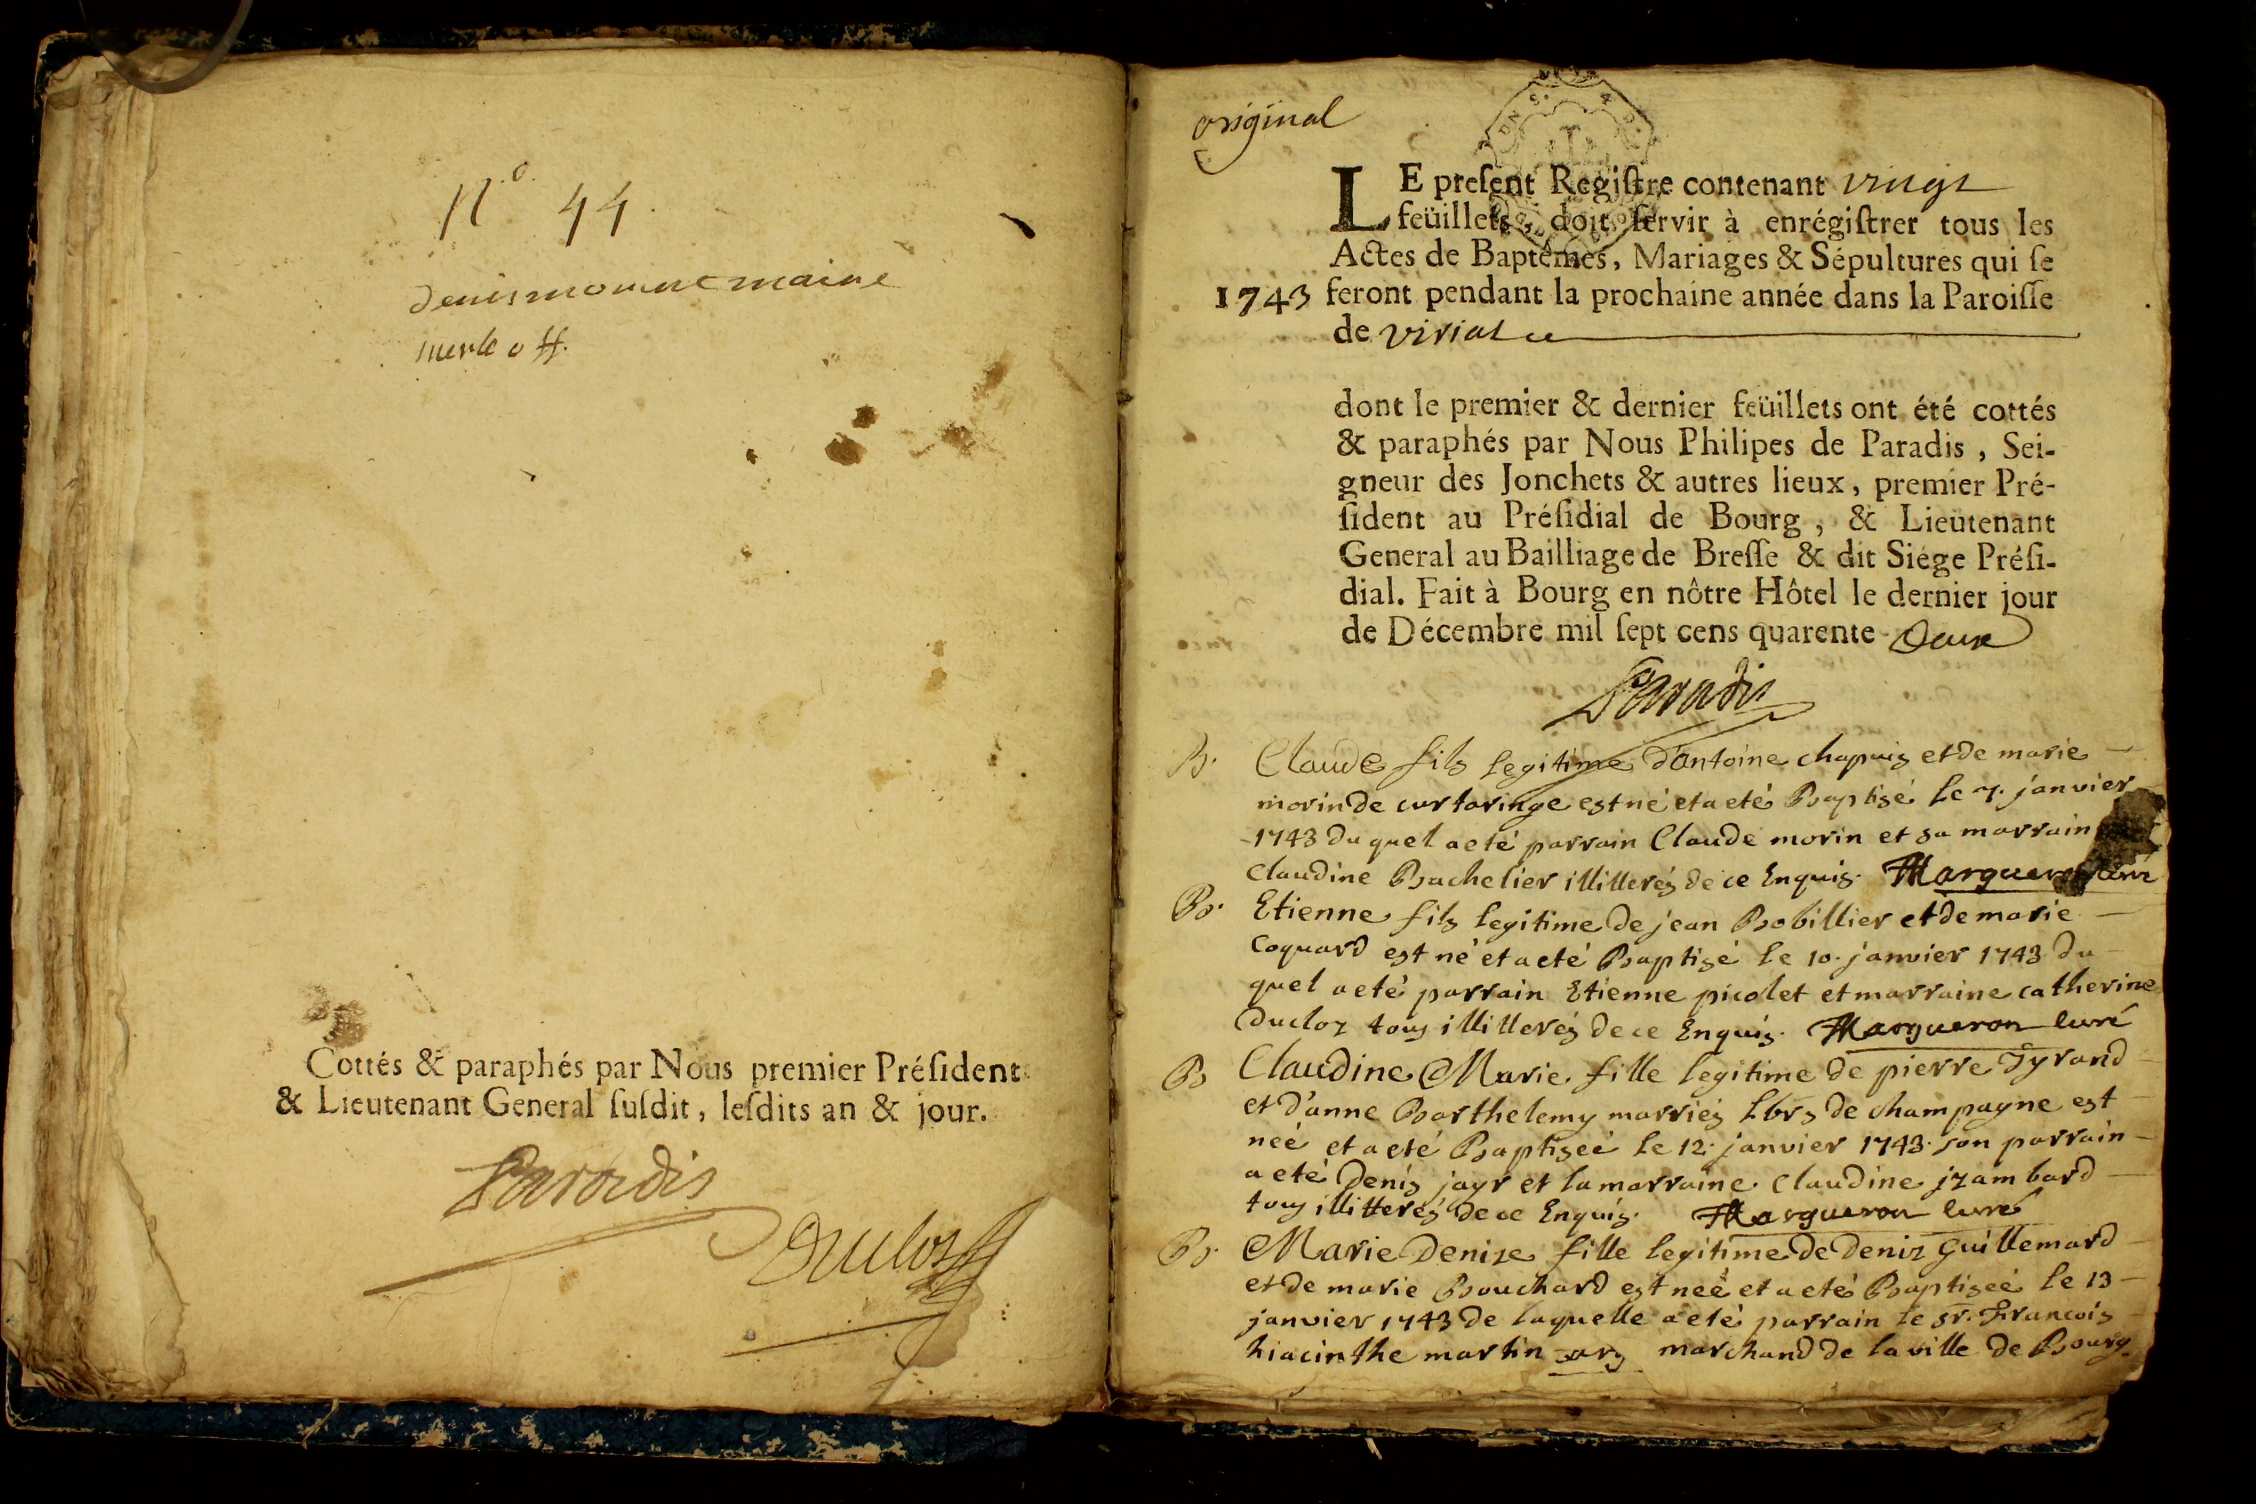 N.o 44
merle off.
Cottés & paraphés par Nous premier Préſident
& Lieutenant General ſuſdit, leſdits an & jour.
Paradis
Duclos
original
LE preſent Regiſtre contenant vingt
feüillets, doit ſervir à enrégiſtrer tous les
Actes de Baptêmes, Mariages & Sépultures qui ſe
1743 feront pendant la prochaine année dans la Paroiſſe
de viriat
dont le premier & dernier feüillets ont été cottés
& paraphés par Nous Philipes de Paradis, Sei-
gneur des Jonchets & autres lieux, premier Pré-
ſident au Préſidial de Bourg, & Lieutenant
General au Bailliage de Breſſe & dit Siége Préſi-
dial. Fait à Bourg en nôtre Hôtel le dernier jour
de Décembre mil ſept cens quarente deux
Paradis
B. Claude fils legitime d'antoine chapuis et de marie
morin de curtaringe est né et a eté Baptisé le 7. janvier
1743 du quel a eté parrain Claude morin et sa marrain
claudine Bachelier illiterés de ce Enquis. Margueron curé
B. Etienne fils legitime de jean Bobillier et de marie
coquard est né et a eté Baptisé le 10. janvier 1743 du
quel a eté parrain Etienne picolet et marraine catherine
Ducloz tous illiterés de ce Enquis. Margueron curé
B Claudine Marie fille legitime de pierre Tyrand
et d'anne Barthelemy marriés lbrs de champagne est
neé et a eté Baptiseé le 12. janvier 1743. son parrain
a eté Denis jayr et la marraine Claudine jzambard
tous illitterés de ce Enquis. Margueron curé
B. Marie Denize fille legitime de Deniz Guillemard
et de marie Bouchard est neé et a eté Baptiseé le 13
janvier 1743 de laquelle a eté parrain le sr. Francois
hiacinthe martin marchand de la ville de Bourg